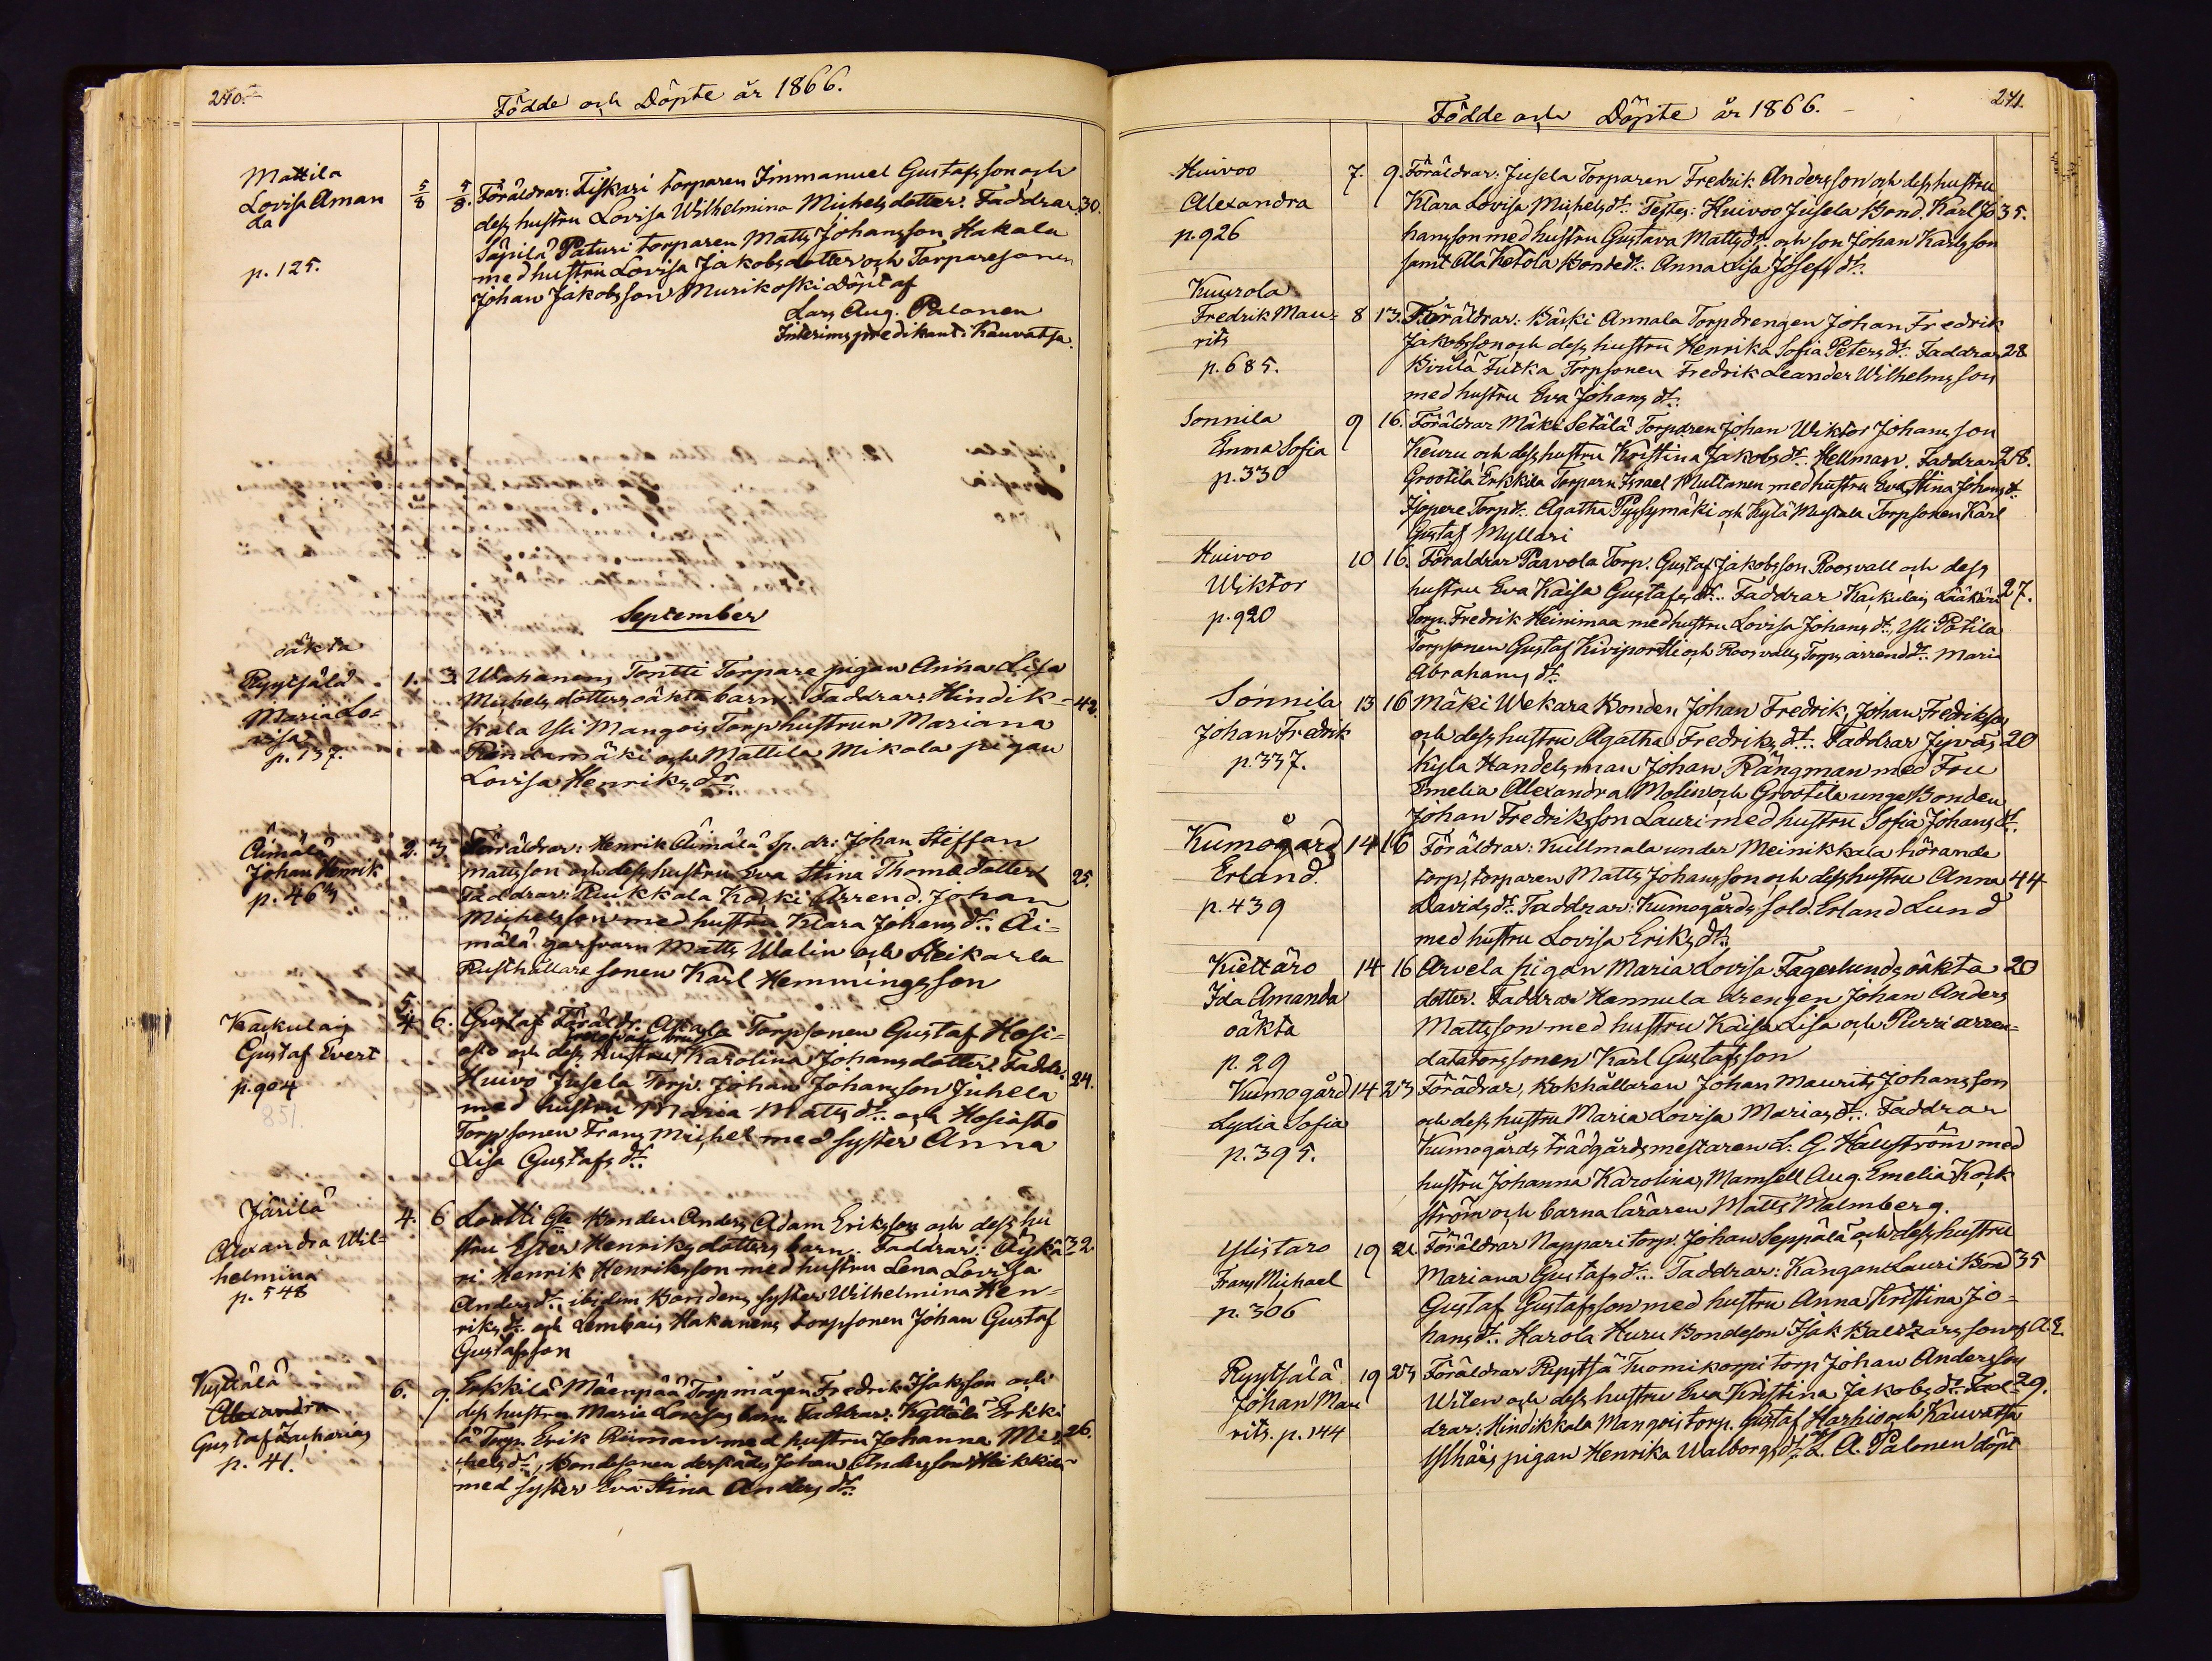 240.
Födde och Döpte år 1866.
Mattila
Lovisa Aman
da
p. 125.
5/8
5/8.
Föräldrar: Tiskari torparen Immanuel Gustafsson och
dess hustru Lovisa Wilhelmina Michelsdotter. Faddrar
30.
Säpilä Paturi torparen Matts Johansson Hakala
med hustru Lovisa Jakobsdotter och Torparesonen
Johan Jakobsson Murikoski döpt af
Lars Aug. Palonen
Interimspredikant i Kauvatsa.
September
oäkta
Ryytsälä
Maria Lo=
visa
p. 137.
1. 3.
Wahanens Tontti Torpare pigan Anna Lisa
Michelsdotters oäkta barn. Faddrar: Hindik=
42.
kala Yli Mangois Torphustrun Mariana
Rindamäki och Mattila Mikola pigan
Lovisa Henriksdr.
Äimälä
Johan Henrik
p. 46½
2. 3.
Föräldrar: Henrik Äimälä sp. dr: Johan Steffan
Mattsson och dess hustru Eva Stina Thomædotter
25.
Faddrar: Ruskkala Koski Arrend. Johan
Michelsson med hustru Klara Johansdr. Äi=
mälä garfvarn Matts Walin och Heikarla
Rusthållare sonen Karl Hemmingsson
Kaukulais
Gustaf Evert
p. 904
851.
5
4 6.
Gustaf Föräldr. Torpsonen Gustaf Hosi=
asto och dess hustru Karolina Johansdotter. Faddr.
24.
Huivo Jusela Torp. Johan Johansson Juhela
med hustru Maria Mattsdr. och Hosiasto
Torpsonen Frans Michel med syster Anna
Lisa Gustafsdr.
Järilä
Alexandra Wil=
helmina
p. 548
4. 6
Lootti Bonden Anders Adam Eriksson och dess hu
stru Ester Henriksdotters barn. Faddrar: Äyskä
32
ri Henrik Henriksson med hustru Lena Lovisa
Andersdr. ibidem Bondens syster Wilhelmina Hen=
riksdr. och Lembois Hakanens torpsonen Johan Gustaf
Gustafsson
Kyttälä
Alexandra
Gustaf Zacharias
p. 41.
6. 9.
Erkkilä Mäenpää Torpmågen Fredrik Isaksson och
dess hustru Maria Lovisas barn. Faddrar: Kyttälä Erkki
26.
lä Torp. Erik Röiman med hustru Johanna Mi
helsdr., Bondesonen derstädes Johan Andersson Heikkilä
med syster Eva Stina Andersdr.
241.
Födde och Döpte år 1866.
Huivoo
Alexandra
p. 926
7. 9.
Föräldrar: Jusela Torparen Fredrik Andersson och dess hustru
Klara Lovisa Michelsdr. Testes: Huivoo Jusela Bond. Karl Jo
35.
hansson med hustru Gustava Mattsdr. och son Johan Karlsson
samt Ala Ketola Bondedr. Anna Lisa Josefsdr.
Kuurola
Fredrik Mau=
rits
p. 685.
8 13.
Föräldrar: Bäski Annala Torpdrengen Johan Fredrik
Jakobsson och dess hustru Henrika Sofia Petersdr. Faddrar
28
Torpsonen Fredrik Leander Wilhelmsson
med hustru Eva Johansdr.
Sonnila
Emma Sofia
p. 330
9 16.
Föräldrar Mäki Setälä Torparen Johan Wiktor Johansson
Keuru och dess hustru Kristina Jakobsdr. Hellman. Faddrar
28.
Grootila Erkkila Torparn Israel Multanen med hustru Eva Stina Johansdr.
Isopere Torpdr. Agatha Pyysymäki och Kylä Mustala Torpsonen Karl
Gustaf Myllari
Huivoo
Wiktor
p. 920
10 16.
Föräldrar Paavola Torp. Gustaf Jakobsson Roosvall och dess
hustru Eva Kaisa Gustafsdr. Faddrar Kaukulais Lääkäri
27.
Torp. Fredrik Heinimaa med hustru Lovisa Johansdr., Yli Potila
Torpsonen Gustaf Kiviportti och Roosvalls Torps arrenddr. Maria
Abrahamsdr.
Sonnila
Johan Fredrik
p. 337.
13 16
Mäki Wekara Bonden Johan Fredrik Johan Fredriksson
och dess hustru Agatha Fredriksdr. Faddrar
20
kyla Handelsman Johan Rängman med Fru
Emelia Alexandra Molin och Grootila unge Bonden
Johan Fredriksson Lauri med hustru Sofia Johansdr.
Kumogård
Erland.
p. 439
14 16
Föräldrar: Kullmala under Meinikkala hörande
torp, torparen Matts Johansson och dess hustru Anna
44
Davidsdr. Faddrar: Kumogårds sold. Erland Lund
med hustru Lovisa Eriksdr.
Kiettäro
Ida Amanda
oäkta
p. 29
14 16
Arvela pigan Maria Lovisa Fagerlunds oäkta
20
dotter. Faddrar Hannula drengen Johan Anders
Mattsson med hustru Kaisa Lisa och Pirri arren=
datorssonen Karl Gustafsson
Kumogård
Lydia Sofia
p. 395.
14 23
Förädrar, Bokhållaren Johan Maurits Johansson
och dess hustru Maria Lovisa Mariasdr.: Faddrar
Kumogårds trädgårdsmestaren L. G. Hällström med
hustru Johanna Karolina, Mamsell Aug. Emelia Kock
ström och barna läraren Matts Malmberg.
Ylistaro
Frans Michael
p. 306
19 21
Föräldrar Nappari torp. Johan Seppälä och dess hustru
Mariana Gustafsdr. Faddrar: Kangan Lauri Bond
35
Gustaf Gustafsson med hustru Anna Kristina Jo=
hansdr. Harola Huru Bondeson Isak Baltzarsson
Ryytsälä
Johan Mau
rits. p. 144
19 23
Föräldrar Ryystsä Tuomikorpi torp Johan Andersson
Witen och dess hustru Eva Kristina Jakobsdr. Fad=
29.
drar: Hindikkala Mangois torp. Gustaf Harhio och Kauvatsa
Ylhäis pigan Henrika Walborgsdr. af L. A. Palonen döpt